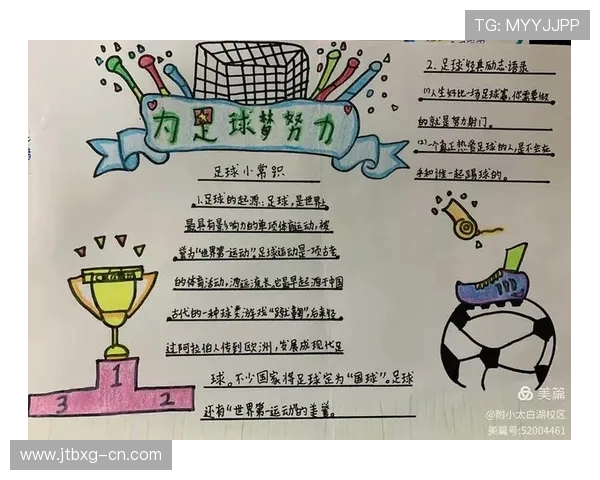 TG: MYYJJPP
为足球梦努力
足球小常识
1.足球的起源：足球，是世界上
最具有影响力的单项体育运动，被
誉为“世界第一运动”。足球运动是一项古老
的体育活动，源远流长。它最早起源于中国
古代的一种球类游戏“蹴鞠”，后来经
过阿拉伯人传到欧洲，发展成现代足
球。不少国家将足球定为“国球”。足球
还有“世界第一运动”的美誉。
2.足球经典励志语录
(1)人生好比一场足球赛，你需要做
的就是努力射门。
(2)一个真正热爱足球的人，是不会在
乎和谁一起踢球的。
1
2
3
美篇
@附小太白湖校区
美篇号:52004461
www.jtbxg-cn.com